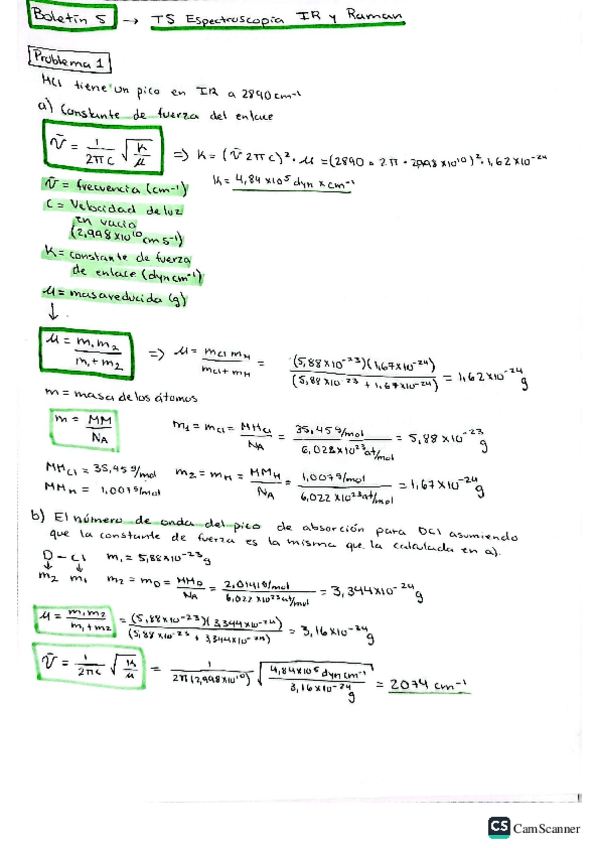 Boletín 5 → TS Espectroscopía IR y Raman
Problema 1
HCl tiene un pico en IR a 2890 cm⁻¹
a) Constante de fuerza del enlace
ṽ = 1/2πc √(K/μ) => K = (ṽ 2πc)² · μ = (2890 · 2π · 2,998×10¹⁰)² · 1,62×10⁻²⁴
K = 4,84×10⁵ dyn × cm⁻¹
ṽ = frecuencia (cm⁻¹)
C = Velocidad de luz
en vacío
(2,998×10¹⁰ cm s⁻¹)
K = constante de fuerza
de enlace (dyn cm⁻¹)
μ = masa reducida (g)
↓
μ = m₁m₂/(m₁+m₂) => μ = mCl mH/(mCl + mH) = (5,88×10⁻²³)(1,67×10⁻²⁴)/(5,88×10⁻²³ + 1,67×10⁻²⁴) = 1,62×10⁻²⁴ g
m = masa de los átomos
m = MM/NA m₁ = mCl = MMCl/NA = 35,45 g/mol / 6,022×10²³ at/mol = 5,88×10⁻²³ g
MMCl = 35,45 g/mol m₂ = mH = MMH/NA = 1,007 g/mol / 6,022×10²³ at/mol = 1,67×10⁻²⁴ g
MMH = 1,007 g/mol
b) El número de onda del pico de absorción para DCl asumiendo
que la constante de fuerza es la misma que la calculada en a).
D – Cl m₁ = 5,88×10⁻²³ g
↓ ↓
m₂ m₁ m₂ = mD = MMD/NA = 2,014 g/mol / 6,022×10²³ at/mol = 3,344×10⁻²⁴ g
μ = m₁m₂/(m₁+m₂) = (5,88×10⁻²³)(3,344×10⁻²⁴)/(5,88×10⁻²³ + 3,344×10⁻²⁴) = 3,16×10⁻²⁴ g
ṽ = 1/2πc √(K/μ) = 1/2π(2,998×10¹⁰) √(4,84×10⁵ dyn cm⁻¹/3,16×10⁻²⁴ g) = 2074 cm⁻¹
CS CamScanner